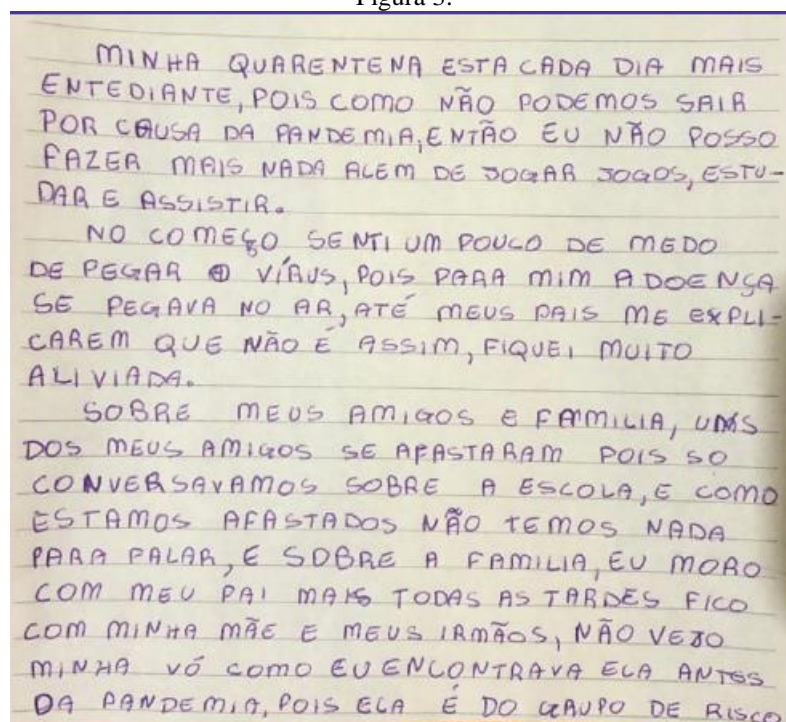 Figura 3:
MINHA QUARENTENA ESTA CADA DIA MAIS
ENTEDIANTE, POIS COMO NÃO PODEMOS SAIR
POR CAUSA DA PANDEMIA, ENTÃO EU NÃO POSSO
FAZER MAIS NADA ALEM DE JOGAR JOGOS, ESTU-
DAR E ASSISTIR.
NO COMEÇO SENTI UM POUCO DE MEDO
DE PEGAR O VÍRUS, POIS PARA MIM A DOENÇA
SE PEGAVA NO AR, ATÉ MEUS PAIS ME EXPLI-
CAREM QUE NÃO É ASSIM, FIQUEI MUITO
ALIVIADA.
SOBRE MEUS AMIGOS E FAMILIA, UNS
DOS MEUS AMIGOS SE AFASTARAM POIS SO
CONVERSAVAMOS SOBRE A ESCOLA, E COMO
ESTAMOS AFASTADOS NÃO TEMOS NADA
PARA FALAR, E SOBRE A FAMILIA, EU MORO
COM MEU PAI MAIS TODAS AS TARDES FICO
COM MINHA MÃE E MEUS IRMÃOS, NÃO VEJO
MINHA VÓ COMO EU ENCONTRAVA ELA ANTES
DA PANDEMIA, POIS ELA É DO GRUPO DE RISCO